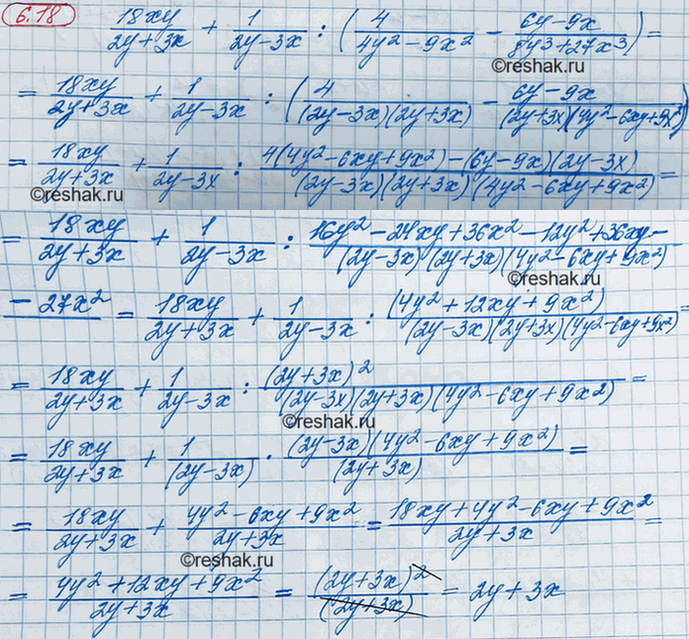 6.18
18xy/(2y+3x) + 1/(2y-3x) : (4/(4y²-9x²) - (6y-9x)/(8y³+27x³)) =
©reshak.ru
= 18xy/(2y+3x) + 1/(2y-3x) : (4/((2y-3x)(2y+3x)) - (6y-9x)/((2y+3x)(4y²-6xy+9x²)))
= 18xy/(2y+3x) + 1/(2y-3x) : (4(4y²-6xy+9x²)-(6y-9x)(2y-3x))/((2y-3x)(2y+3x)(4y²-6xy+9x²)) =
©reshak.ru
= 18xy/(2y+3x) + 1/(2y-3x) : (16y²-24xy+36x²-12y²+36xy-)/((2y-3x)(2y+3x)(4y²-6xy+9x²))
©reshak.ru
-27x² = 18xy/(2y+3x) + 1/(2y-3x) : (4y²+12xy+9x²)/((2y-3x)(2y+3x)(4y²-6xy+9x²)) =
= 18xy/(2y+3x) + 1/(2y-3x) : (2y+3x)²/((2y-3x)(2y+3x)(4y²-6xy+9x²)) =
©reshak.ru
= 18xy/(2y+3x) + 1/(2y-3x) · (2y-3x)(4y²-6xy+9x²)/(2y+3x) =
= 18xy/(2y+3x) + (4y²-6xy+9x²)/(2y+3x) = (18xy+4y²-6xy+9x²)/(2y+3x) =
©reshak.ru
= (4y²+12xy+9x²)/(2y+3x) = (2y+3x)²/(2y+3x) = 2y+3x